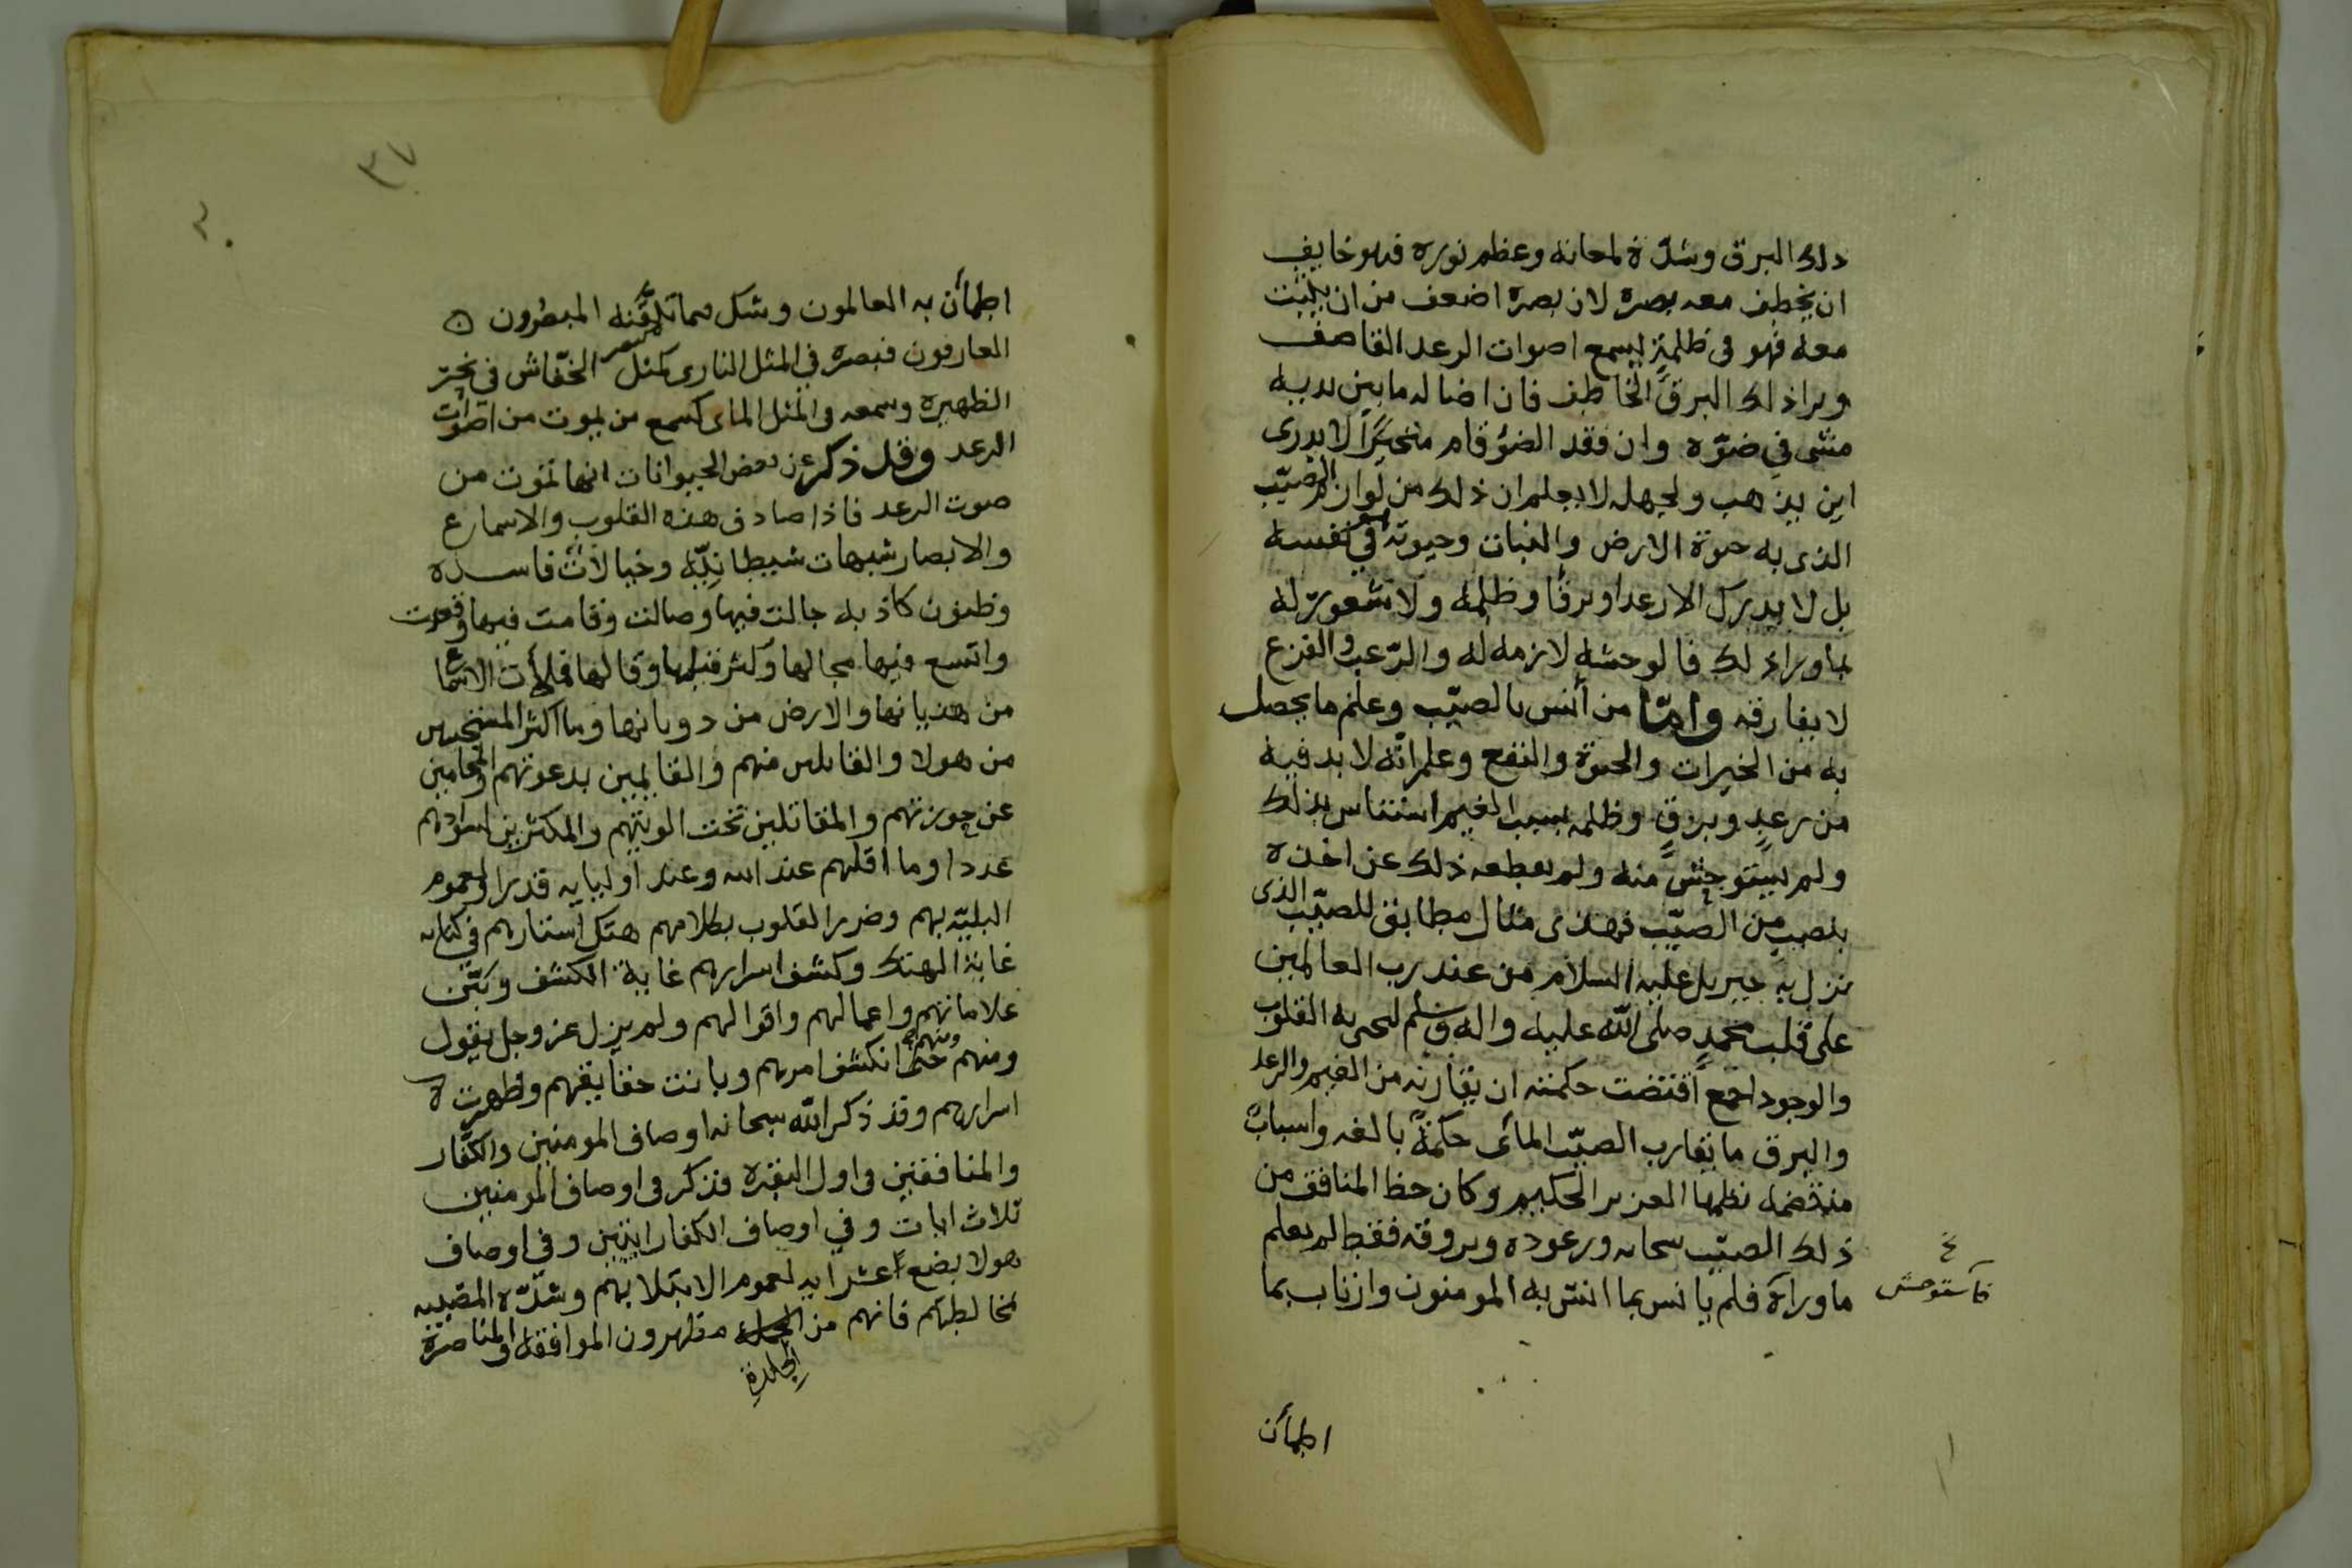 ذلك البرق وشدّة لمعانه وعظم نوره فهو خايف
ان يخطف معه بصره لان بصره اضعف من ان يثبت
معه فهو في ظلمةٍ يسمع اصوات الرعد القاصف
ويرا ذلك البرق الخاطف فان اضا له ما بين يديه
مشى في ضوّه وان فقد الضوُ قام متحيّرًا لا يدرى
اين يذهب ولجهله لا يعلم ان ذلك من لوازم الصيّب
الذى به حيوة الارض والنبات وحيوته هو في نفسه
بل لا يدرك الا رعدا وبرقًا وظلمه ولا شعور له
بما ورا ذلك فالوحشه لازمه له والرّعب والفزع
لا يفارقه وامّا من أنس بالصيّب وعلم ما يحصل
به من الخيرات والحيوة والنفع وعلم انّه لا بد فيه
من رعدٍ وبرقٍ وظلمه بسبب الغيم استناس بذلك
ولم يستوحش منه ولم يقطعه ذلك عن اخذه
بنصيبٍ من الصيّب فهذى مثال مطابق للصيّب الذى
نزل به جبريل عليه السلام من عند رب العالمين
على قلب محمدٍ صلى الله عليه واله وسلم ليحيى به القلوب
والوجود اجمع اقتضت حكمته ان يقارنه من الغيم والرعد
والبرق ما يقارب الصيّب المائى حكمةً بالغه واسبابًا
منتظمه نظمها العزيز الحكيم وكان حظ المنافق من
ذلك الصيّب سحابه ورعوده وبروقه فقط لم يعلم
ما وراه فلم يانس بما انس به المومنون وارتاب بما
فاستوحش
اطمأن
٣٧
اطمأن به العالمون وشك مما تيقّنه المبصرون
العارفون فبصره في المثل النارى كبصر الخفّاش في نحر
الظهيره وسمعه في المثل المائى كسمع من يموت من اصوات
الرعد وقد ذكر عن بعض الحيوانات انها تموت من
صوت الرعد فاذا صادف هذه القلوب والاسماع
والابصار شبهات شيطانيّه وخيالاتٌ فاسده
وظنون كاذبه جالت فيها وصالت وقامت فيها وقعدت
واتسع فيها مجالها وكثر قيلها وقالها فملأت الاسماع
من هذيانها والارض من دويانها وما اكثر المستجيبين
من هولا والقابلين منهم والقايمين بدعوتهم والمحامين
عن حوزتهم والمقاتلين تحت الويتهم والمكثرين لسوادهم
عددا وما اقلهم عند الله وعند اوليايه قدرا ولعموم
البليّه بهم وضرر القلوب بكلامهم هتك استارهم في كتابه
غاية الهتك وكشف اسرارهم غاية الكشف وبيّن
علاماتهم واعمالهم واقوالهم ولم يزل عز وجل يقول
ومنهم ومنهم حتى انكشف امرهم وبانت حقايقهم وظهرت
اسرارهم وقد ذكر الله سبحانه اوصاف المومنين والكفّار
والمنافقين في اول البقره فذكر في اوصاف المومنين
ثلاث ايات وفي اوصاف الكفار ايتين وفي اوصاف
هولا بضع عشر ايه لعموم الابتلا بهم وشدّه المصيبه
بمخالطتهم فانهم من الجلدة مظهرون الموافقه والمناصرة
الجلدةِ